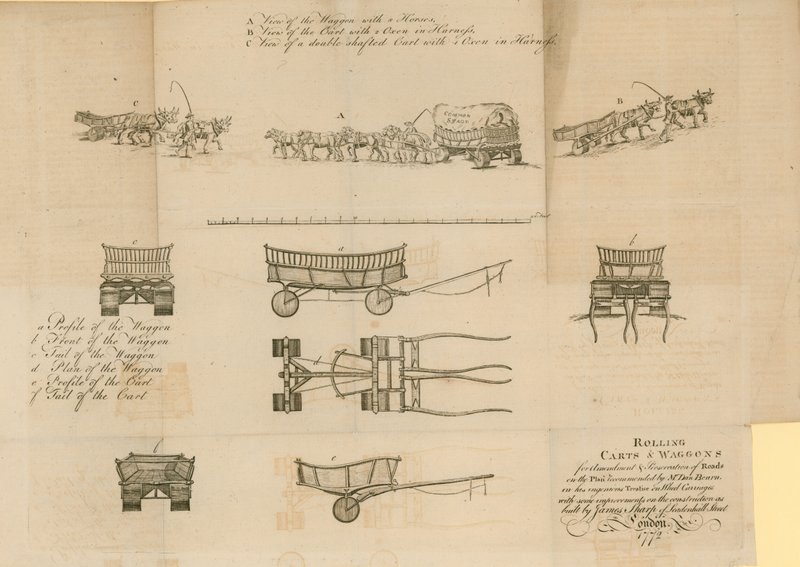 A View of the Waggon with 8 Horses,
B View of the Cart with 2 Oxen in Harneſs,
C View of a double shafted Cart with 4 Oxen in Harneſs,
C
A
B
COMMON
STAGE
c
a
b
a Profile of the Waggon
b Front of the Waggon
c Tail of the Waggon
d Plan of the Waggon
e Profile of the Cart
f Tail of the Cart
d
f
e
ROLLING
CARTS & WAGGONS
for Amendment & Preservation of Roads
on the Plan recommended by Mr. Dan. Bourn.
in his ingenious Treatise on Wheel Carriages
with some improvements on the construction as
built by James Sharp of Leadenhall Street
London.
1772